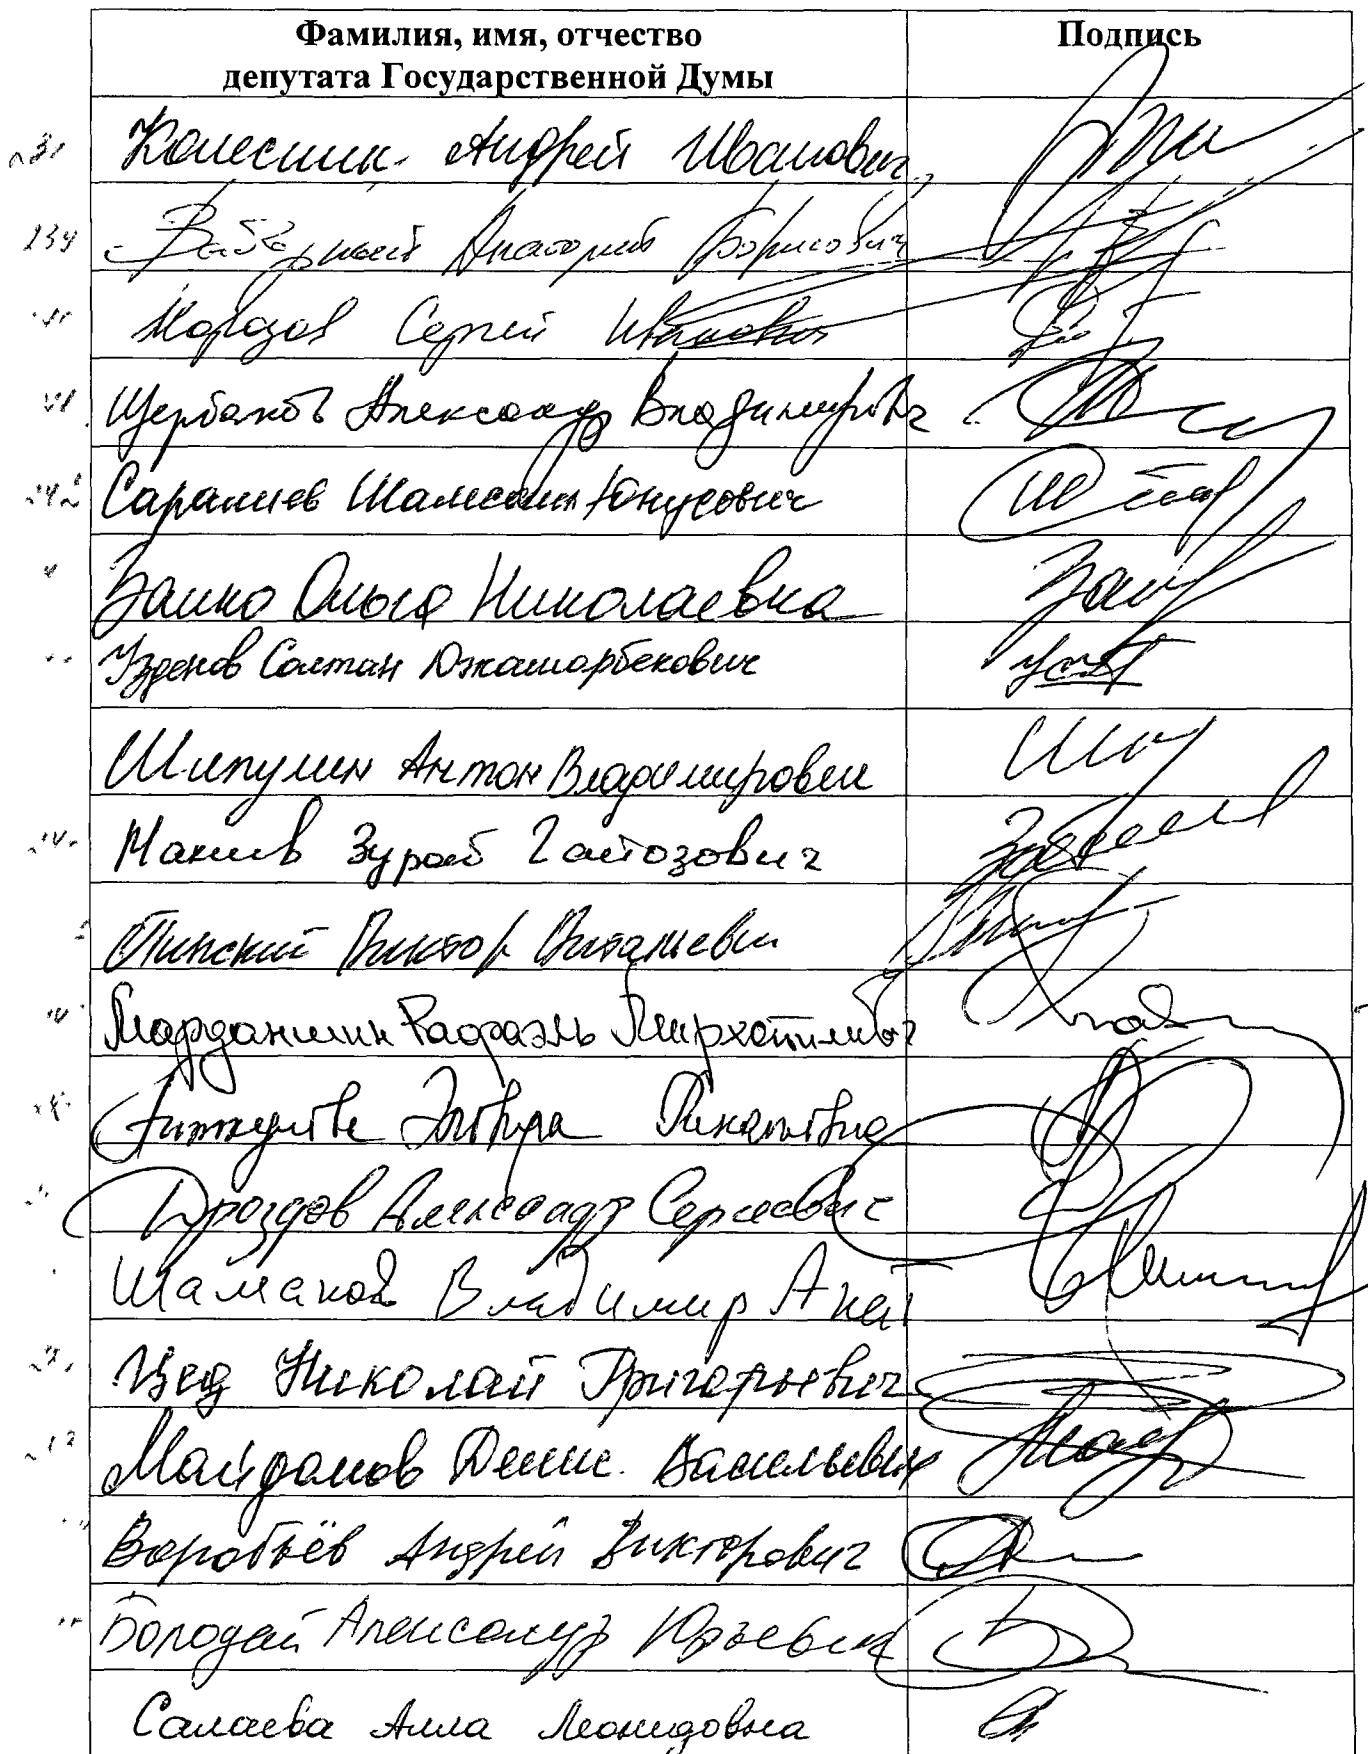 Фамилия, имя, отчество
депутата Государственной Думы
Подпись
Колесник Андрей Иванович
234 Выборный Анатолий Борисович
Морозов Сергей Иванович
Щербаков Александр Владимирович
Саралиев Шамсаил Юнусович
Занко Ольга Николаевна
Узденов Солтан
Шипулин Антон Владимирович
Макиев Зураб Гайозович
Пинский Виктор Витальевич
Марданшин Рафаэль Мирхатимович
Эльвира Ринатовна
Дроздов Александр Сергеевич
Шаманов Владимир Анат
Цед Николай Григорьевич
Майданов Денис Васильевич
Воробьёв Андрей Викторович
Бородай Александр Юрьевич
Салаева Алла Леонидовна